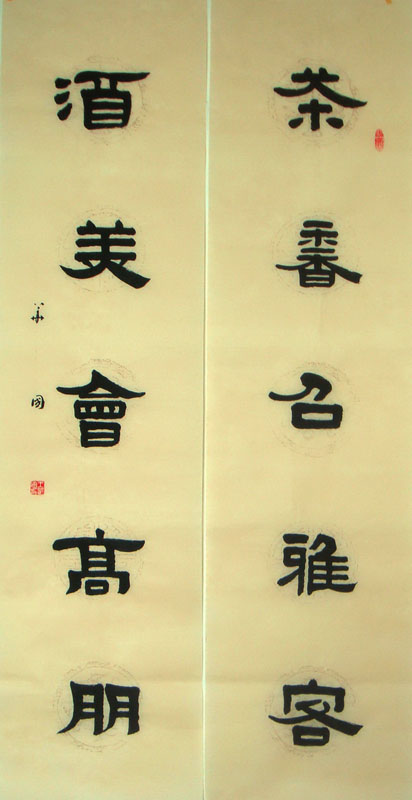 茶香召雅客
酒美會高朋
華國